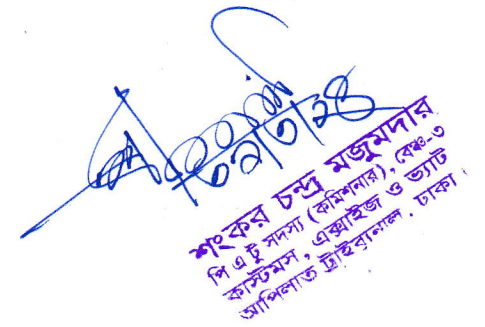 শংকর চন্দ্র মজুমদার
পি এ টু সদস্য (কমিশনার), বেঞ্চ-৩
কাস্টমস, এক্সাইজ ও ভ্যাট
আপিলাত ট্রাইব্যুনাল, ঢাকা।